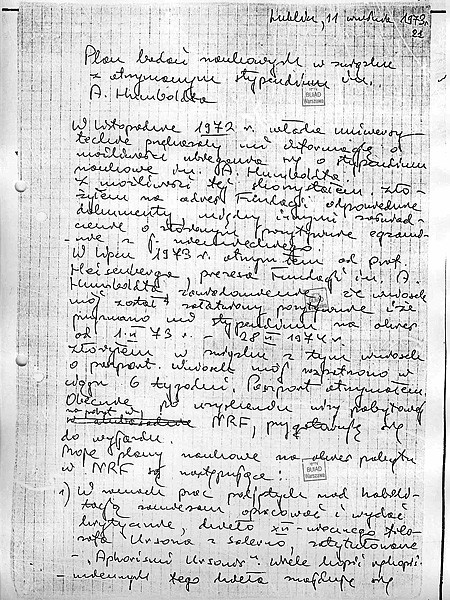 Lublin, 11 września 1973 r.
21
Plan badań naukowych w związku
z otrzymanym stypendium im.
A. Humboldta
BUiAD
Warszawa
W listopadzie 1972 r. władze uniwersy-
teckie przekazały mi informację o
możliwości ubiegania się o stypendium
naukowe im. A. Humboldta.
Z możliwości tej skorzystałem, zło-
żyłem na adres Fundacji odpowiednie
dokumenty, między innymi zaświad-
czenie o złożonym pozytywnie egzami-
nie z j. niemieckiego.
W lipcu 1973 r. otrzymałem od prof.
Heisenberga prezesa Fundacji im. A.
Humboldta zawiadomienie, że wniosek
mój został załatwiony pozytywnie i że
przyznano mi stypendium na okres
od 1 73 r. - 28 II 1974 r.
Złożyłem w związku z tym wniosek
o paszport. Wniosek mój rozpatrzono w
ciągu 6 tygodni. Paszport otrzymałem.
Obecnie po uzyskaniu wizy pobytowej
na pobyt w
NRF, przygotowuję się
do wyjazdu.
Moje plany naukowe na okres pobytu
w NRF są następujące:
BUiAD
Warszawa
1) W ramach prac podjętych nad habili-
tacją zamierzam opracować i wydać
krytycznie, dzieło XII-wiecznego
Ursona z Salerno, zatytułowane
- "Aphorismi Ursonis". Wiele kopii rękopi-
śmiennych tego dzieła znajduje się